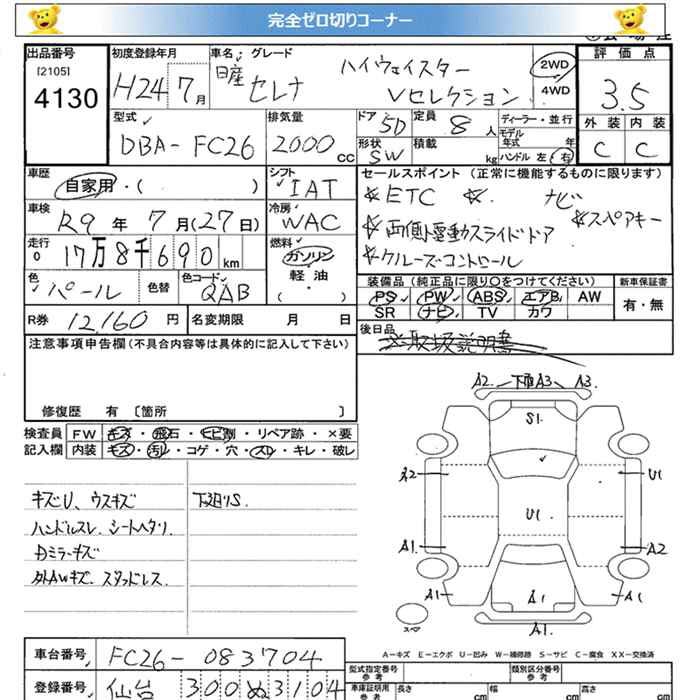 完全ゼロ切りコーナー
出品番号
[2105]
4130
初度登録年月
H24 7月
車名・グレード
日産 セレナ
ハイウェイスター
Vセレクション
2WD
4WD
評価点
3.5
外装 内装
C C
型式
DBA-FC26
排気量
2000 CC
ドア 5D
形状 SW
定員 8 人
積載 kg
ディーラー・並行
モデル年式 年
ハンドル 左・右
車歴
自家用・( )
シフト
IAT
車検
R9 年 7 月(27日)
冷房
WAC
走行
17万8千690km
燃料
ガソリン
軽・油
( ・ )
色
パール
色替
色コード
QAB
セールスポイント (正常に機能するものに限ります)
☆ETC ☆ ナビ
☆両側電動スライドドア ☆スペアキー
☆クルーズコントロール
装備品 (純正品に限り○をつけてください)
PS PW ABS エアB AW
SR ナビ TV カワ
新車保証書
有・無
R券 12,160 円
名変期限 月 日
後日品
取扱説明書
注意事項申告欄 (不具合内容等は具体的に記入して下さい)
修復歴 有 〔箇所 〕
検査員 FW キズ・飛石・ヒビ割・リペア跡・×要
記入欄 内装 キズ・汚レ・コゲ・穴・スレ・キレ・破レ
キズU、ウスキズ
ハンドルスレ、シートヘタリ
Dミラーキズ
外AWキズ、スタッドレス
下廻りS
A2 下廻A3 A3
S1
A2 U1
U1
A1 A2
A1 A1 A1
A1
スペア
A-キズ E-エクボ U-凹み W-補修跡 S-サビ C-腐食 XX-交換済
車台番号 FC26-083704
登録番号 仙台 300 ぬ 3104
型式指定番号
参考
類別区分番号
参考
車庫証明用
参考
長さ cm 幅 cm 高さ cm